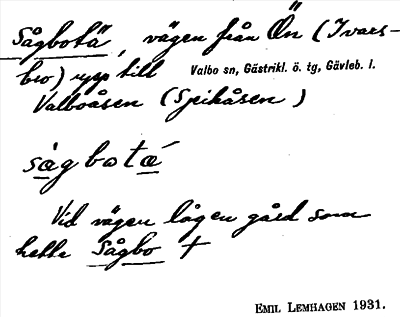 Sågbotä, vägen från Ön (Ivars-
bro) upp till Valbo sn, Gästrikl. ö. tg, Gävleb. l.
Valboåsen (Spikåsen)
sågbotä́
Vid vägen lågen gård som
hette Sågbo †
EMIL LEMHAGEN 1931.